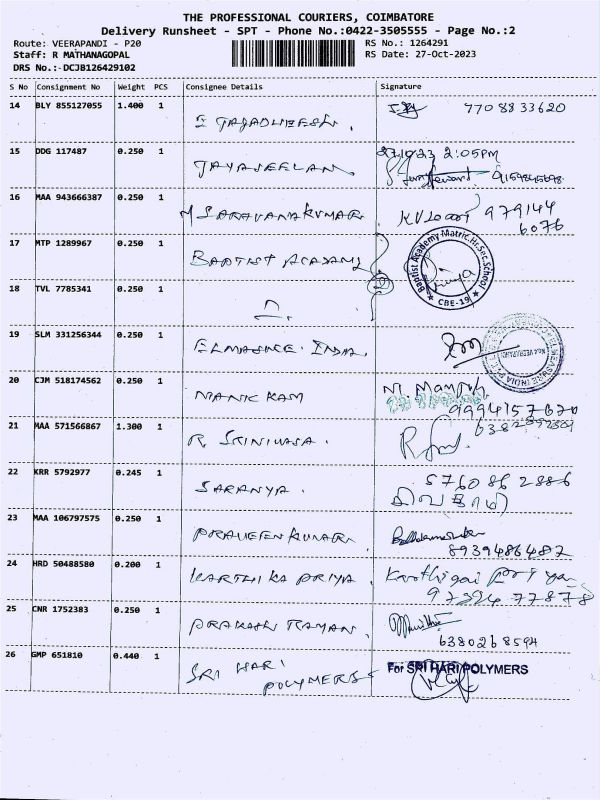 THE PROFESSIONAL COURIERS, COIMBATORE
Delivery Runsheet - SPT - Phone No.:0422-3505555 - Page No.:2
Route: VEERAPANDI - P20
RS No.: 1264291
Staff: R MATHANAGOPAL
RS Date: 27-Oct-2023
DRS No.:-DCJB126429102
S No Consignment No Weight PCS Consignee Details Signature
14 BLY 855127055 1.400 1
7708833620
15 DDG 117487 0.250 1
27/10/23 2:05PM
JAYASEELAN
16 MAA 943666387 0.250 1
M SARAVANAKUMAR 979144
6076
17 MTP 1289967 0.250 1
BAPTIST ACADAMY
Baptist Academy Matric.Hr.Sec.School
CBE-19
18 TVL 7785341 0.250 1
19 SLM 331256344 0.250 1
INDIA
20 CJM 518174562 0.250 1
MANICKAM
9994157670
21 MAA 571566867 1.300 1
R. SRINIVASA.
22 KRR 5792977 0.245 1
SARANYA. 5760862886
23 MAA 106797575 0.250 1
PRAVEEN KUMAR
8939486487
24 HRD 50488580 0.200 1
KARTHIKA PRIYA. Karthigai Priya
25 CNR 1752383 0.250 1
PRAKASH RAMAN.
6380268594
26 GMP 651810 0.440 1
SRI HARI
POLYMERS
For SRI HARI POLYMERS